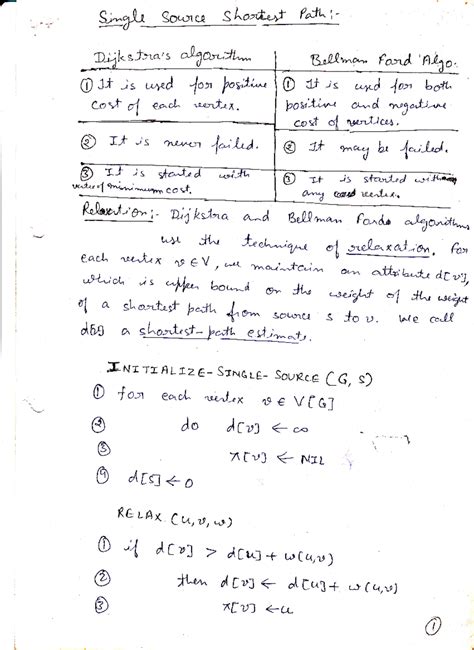 Single Source Shortest Path:-
Dijkstra's algorithm
① It is used for positive
cost of each vertex.
② It is never failed.
③ It is started with
vertex of minimum cost.
Bellman Ford Algo.
① It is used for both
positive and negative
cost of vertices.
② It may be failed.
③ It is started with
any vertex.
Relaxation:- Dijkstra and Bellman Fords algorithms
use the technique of relaxation. For
each vertex v ∈ V, we maintain an attribute d[v],
which is upper bound on the weight of the weight
of a shortest path from source s to v. We call
d[v] a shortest-path estimate.
INITIALIZE-SINGLE-SOURCE (G, S)
① for each vertex v ∈ V[G]
② do d[v] ← ∞
③ π[v] ← NIL
④ d[S] ← 0
RELAX (u, v, w)
① if d[v] > d[u] + w(u,v)
② then d[v] ← d[u] + w(u,v)
③ π[v] ← u
①